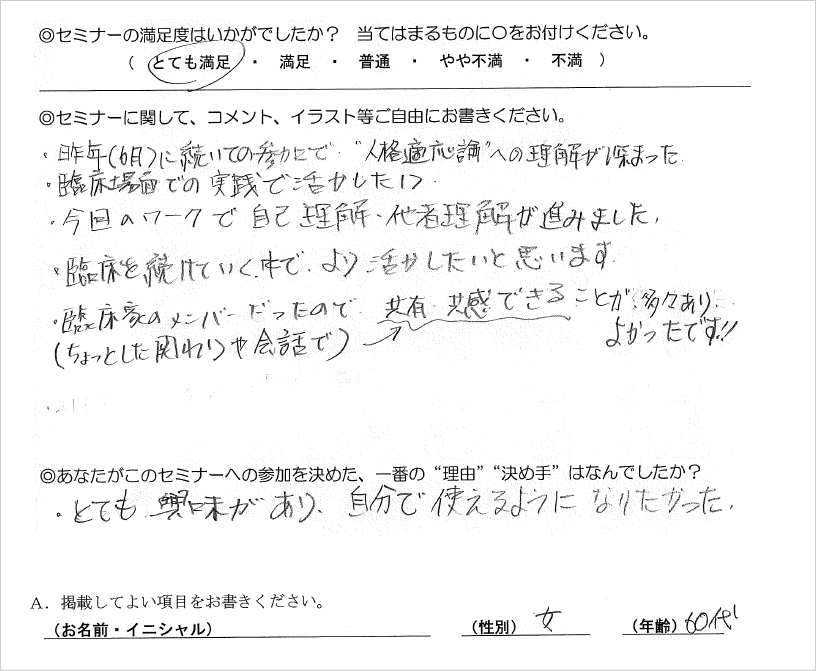 ◎セミナーの満足度はいかがでしたか？　当てはまるものに〇をお付けください。
（　とても満足　・　満足　・　普通　・　やや不満　・　不満　）
◎セミナーに関して、コメント、イラスト等ご自由にお書きください。
・昨年(6月)に続いての参加で"人格適応論"への理解が深まった
・臨床場面での実践で活かしたい
・今回のワークで自己理解・他者理解が進みました。
・臨床を続けていく中で、より活かしたいと思います。
・臨床家のメンバーだったので 共有・共感できることが多々あり
(ちょっとした関わりや会話で)→ よかったです!!
◎あなたがこのセミナーへの参加を決めた、一番の“理由”“決め手”はなんでしたか？
・とても興味があり、自分で使えるようになりたかった。
A．掲載してよい項目をお書きください。
（お名前・イニシャル） （性別） 女 （年齢） 60代